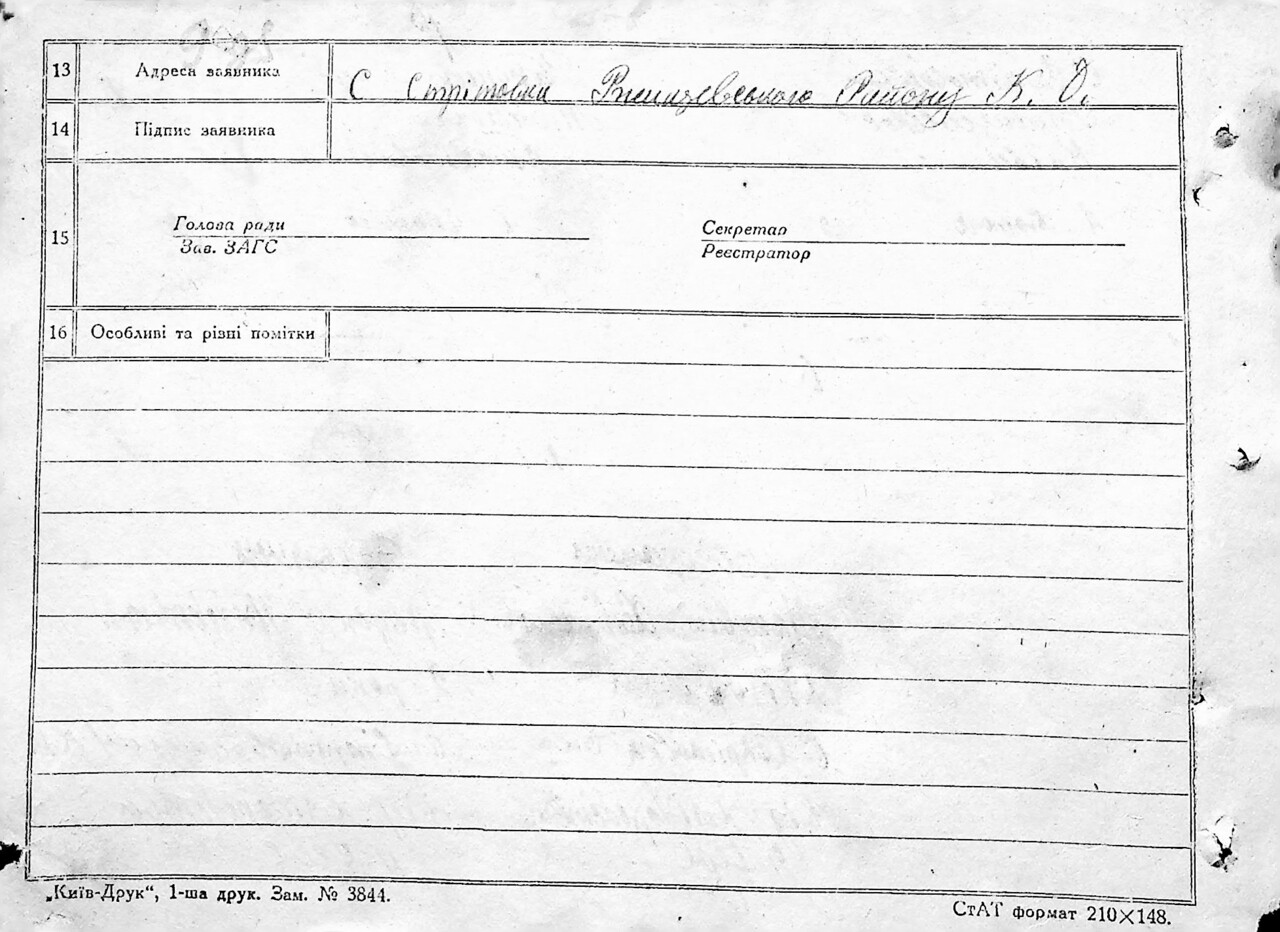 13 Адреса заявника С Стрітовка Ржищевського Району К. О.
14 Підпис заявника
15 Голова ради Секретар
Зав. ЗАГС Реєстратор
16 Особливі та різні помітки
„Київ-Друк“, 1-ша друк. Зам. № 3844.
СтАТ формат 210×148.